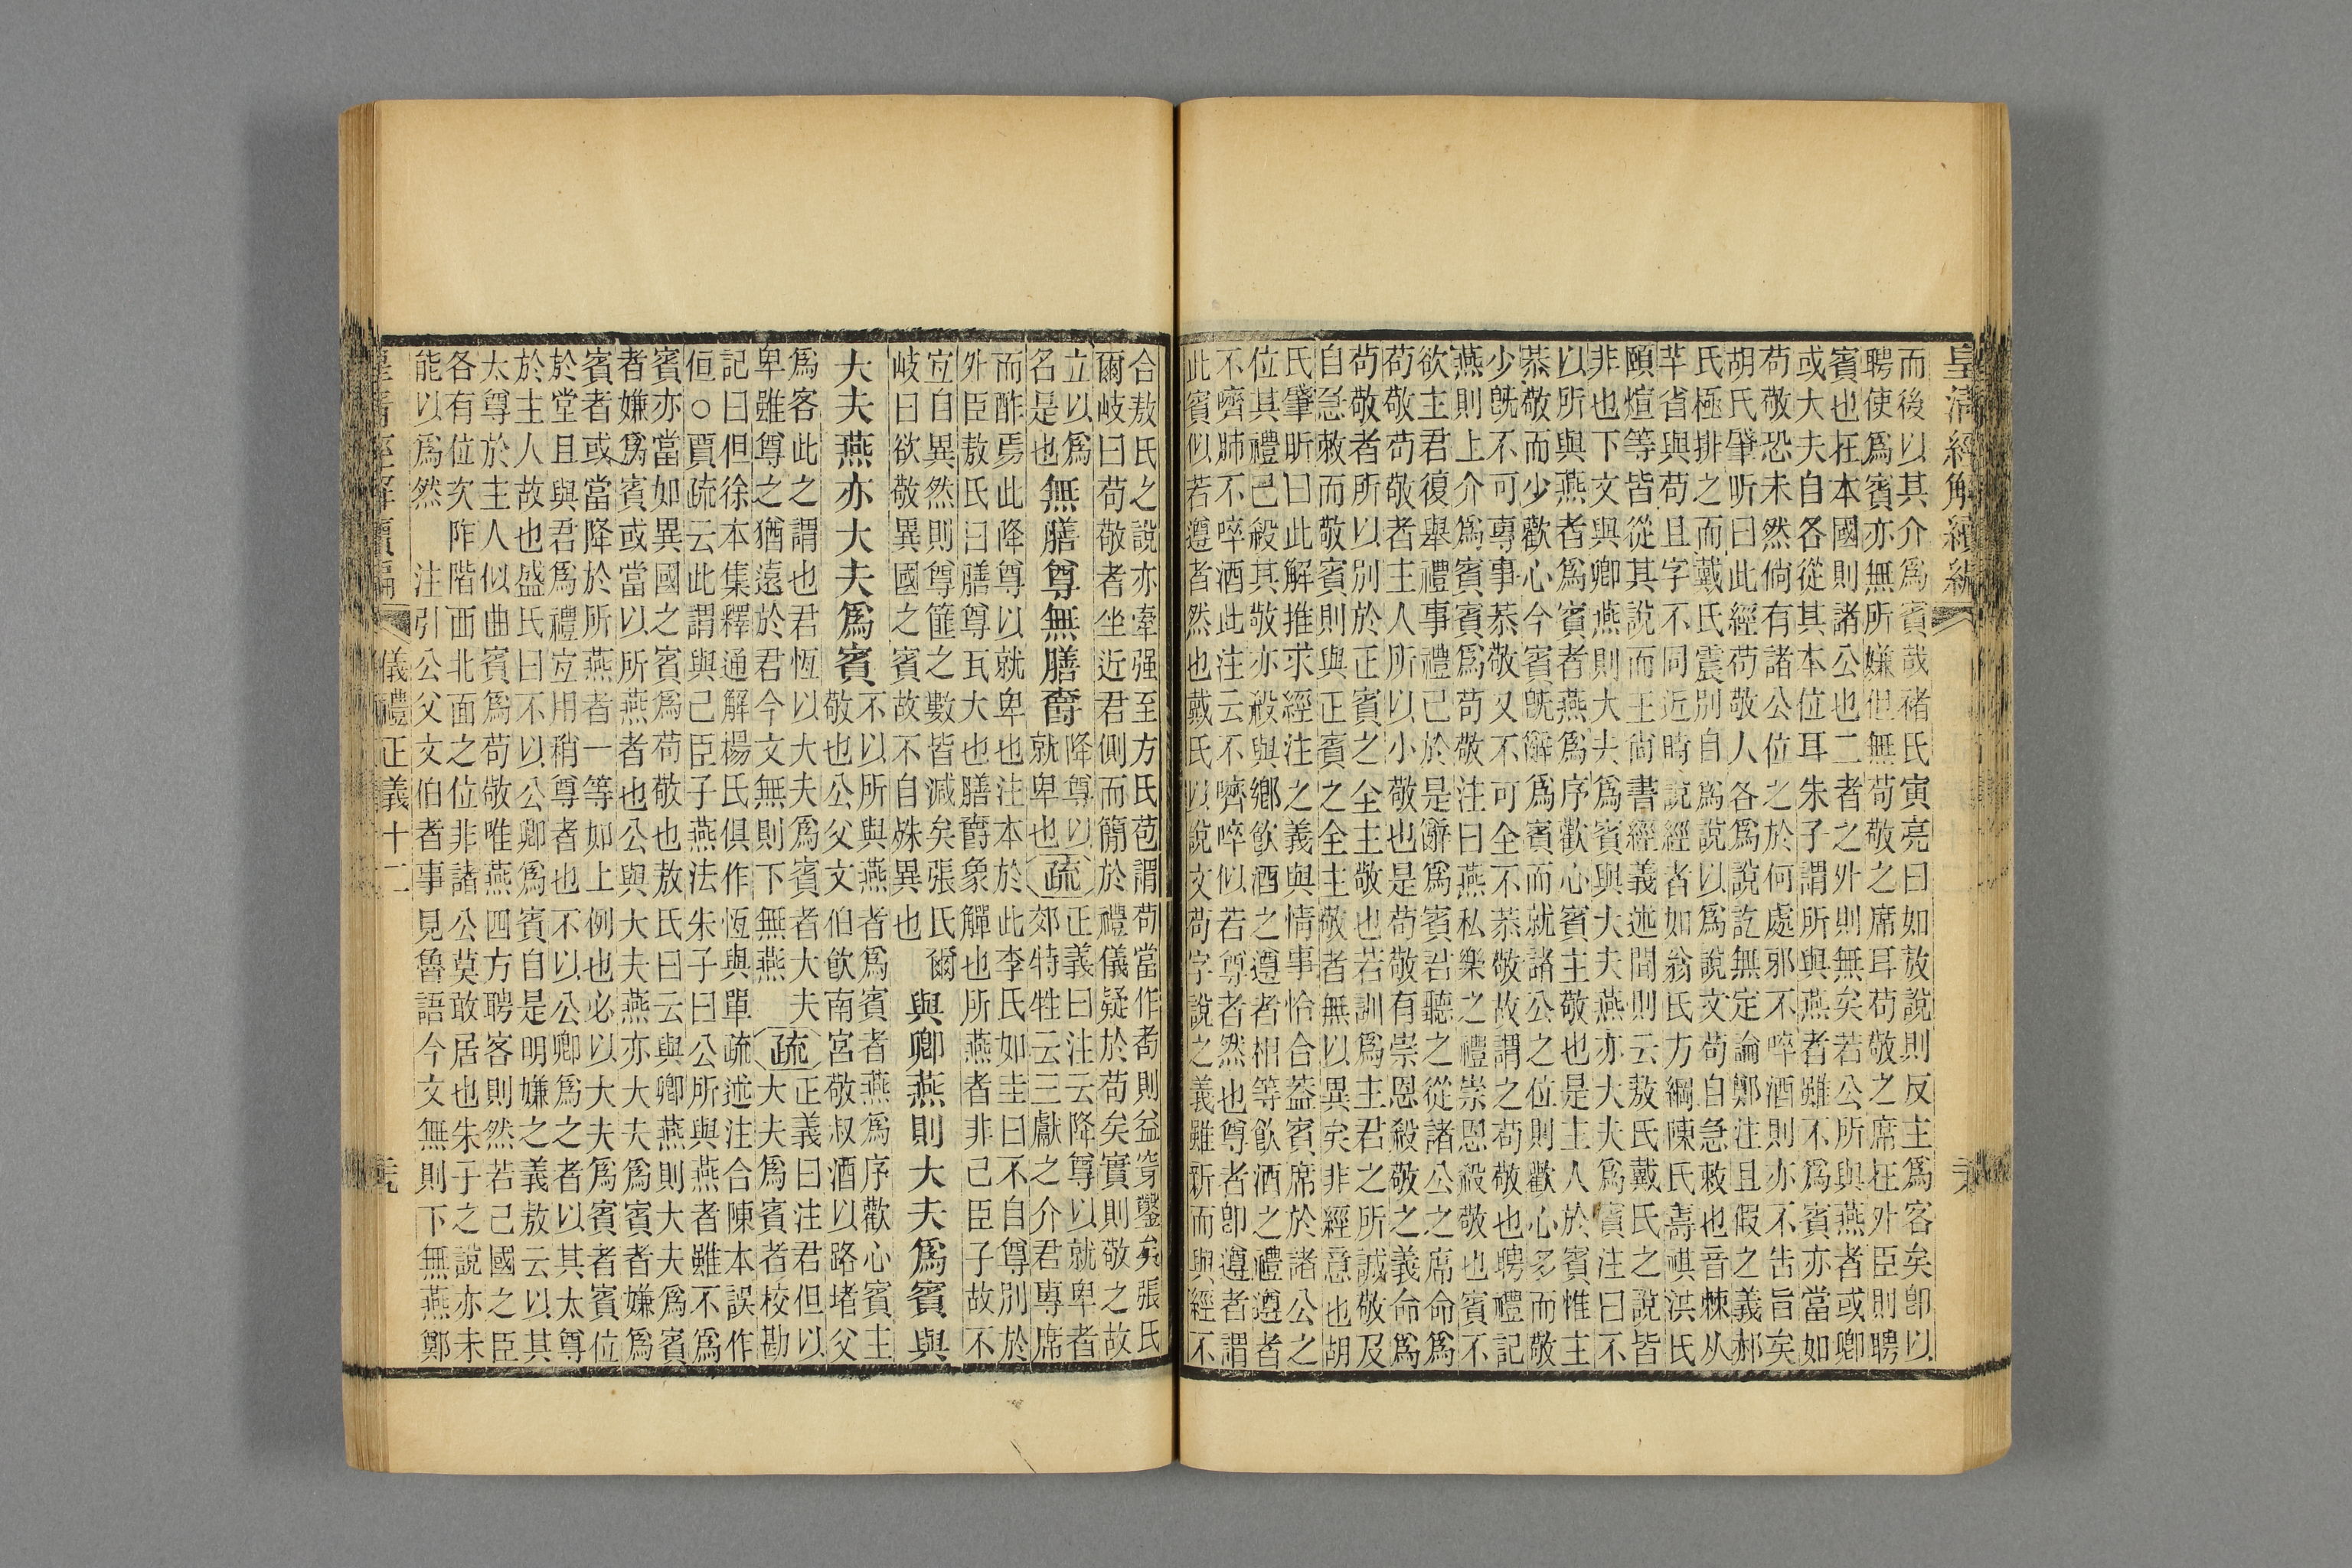 皇清經解續編
而後以其介爲賓哉褚氏寅亮曰如敖說則反主爲客矣卽以
聘使爲賓亦無所嫌但無苟敬之席耳苟敬之席在外臣則聘
賓也在本國則諸公也二者之外則無矣若公所與燕者或卿
或大夫自各從其本位耳朱子謂所與燕者雖不爲賓亦當如
苟敬恐未然倘有諸公位之於何處邪不啐酒則亦不告旨矣
胡氏肇昕曰此經苟敬人各爲說訖無定論鄭注且假之義郝
氏極排之而戴氏震別自爲說以爲說文苟自急敕也音棘从
羊省與苟且字不同近時說經者如翁氏方綱陳氏壽祺洪氏
頤煊等皆從其說而王尙書經義述聞則云敖氏戴氏之說皆
非也下文與卿燕則大夫爲賓與大夫燕亦大夫爲賓注曰不
以所與燕者爲賓者燕爲序歡心賓主敬也是主人於賓惟主
恭敬而少歡心今賓旣辭爲賓而就諸公之位則歡心多而敬
少旣不可專事恭敬又不可全不恭敬故謂之苟敬也聘禮記
燕則上介爲賓賓爲苟敬注曰燕私樂之禮崇恩殺敬也賓不
欲主君復舉禮事禮已於是辭爲賓君聽之從諸公之席命爲
苟敬苟敬者主人所以小敬也是苟敬有崇恩殺敬之義命爲
苟敬者所以別於正賓之全主敬也若訓爲主君之所誠敬及
自急敕而敬賓則與正賓之全主敬者無以異矣非經意也胡
氏肇昕曰此解推求經注之義與情事恰合葢賓席於諸公之
位其禮已殺其敬亦殺與鄉飮酒之遵者相等飮酒之禮遵者
不嚌肺不啐酒此注云不嚌啐似若尊者然也尊者卽遵者謂
此賓似若遵者然也戴氏以說文苟字說之義雖新而與經不
合敖氏之說亦牽强至方氏苞謂苟當作耈則益穿鑿矣張氏
爾岐曰苟敬者坐近君側而簡於禮儀疑於苟矣實則敬之故
立以爲名是也無膳尊無膳爵降尊以就卑也疏正義曰注云降尊以就卑者郊特牲云三獻之介君專席
而酢焉此降尊以就卑也注本於此李氏如圭曰不自尊別於
外臣敖氏曰膳尊瓦大也膳爵象觶也所燕者非己臣子故不
宐自異然則尊篚之數皆減矣張氏爾
岐曰欲敬異國之賓故不自殊異也與卿燕則大夫爲賓與
大夫燕亦大夫爲賓不以所與燕者爲賓者燕爲序歡心賓主敬也公父文伯飮南宮敬叔酒以路堵父
爲客此之謂也君恆以大夫爲賓者大夫卑雖尊之猶遠於君今文無則下無燕疏正義曰注君但以大夫爲賓者校勘
記曰但徐本集釋通解楊氏俱作恆與單疏述注合陳本誤作
但○賈疏云此謂與己臣子燕法朱子曰公所與燕者雖不爲
賓亦當如異國之賓爲苟敬也敖氏曰云與卿燕則大夫爲賓
者嫌爲賓或當以所燕者也公與大夫燕亦大夫爲賓者嫌爲
賓者或當降於所燕者一等如上例也必以大夫爲賓者賓位
於堂且與君爲禮宐用稍尊者也不以公卿爲之者以其太尊
於主人故也盛氏曰不以公卿爲賓自是明嫌之義敖云以其
太尊於主人似曲賓爲苟敬唯燕四方聘客則然若己國之臣
各有位次阼階西北面之位非諸公莫敢居也朱子之說亦未
能以爲然　注引公父文伯者事見魯語今文無則下無燕鄭
儀禮正義十二